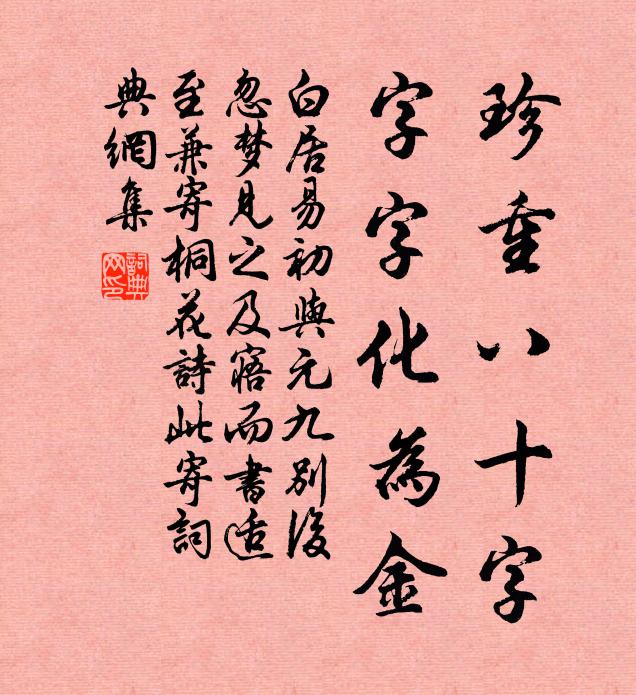 珍重八十字
字字化為金
白居易初與元九別後
忽梦見之及寤而書适
至兼寄桐花詩此寄詞
典網集
詞典網印